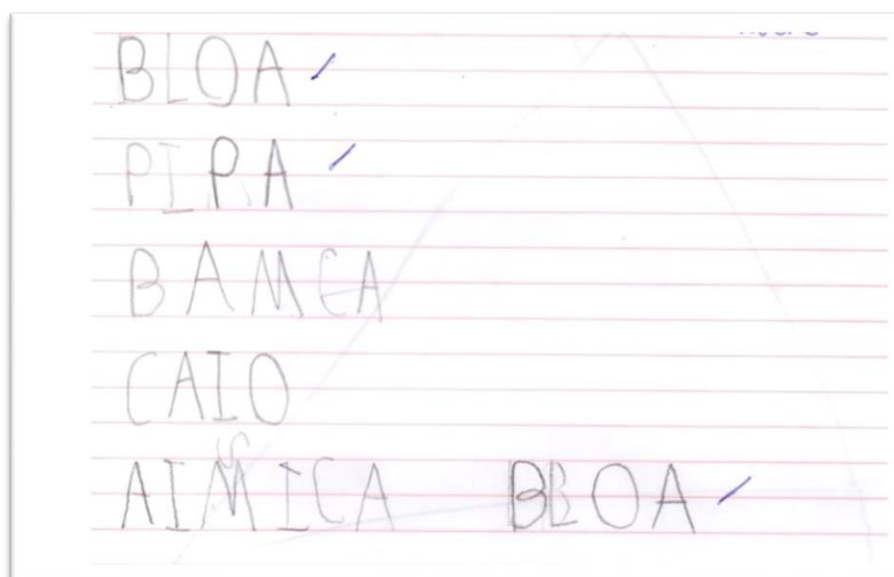 BLOA
PIPA
BAMCA
CAIO
AIMICA BLOA